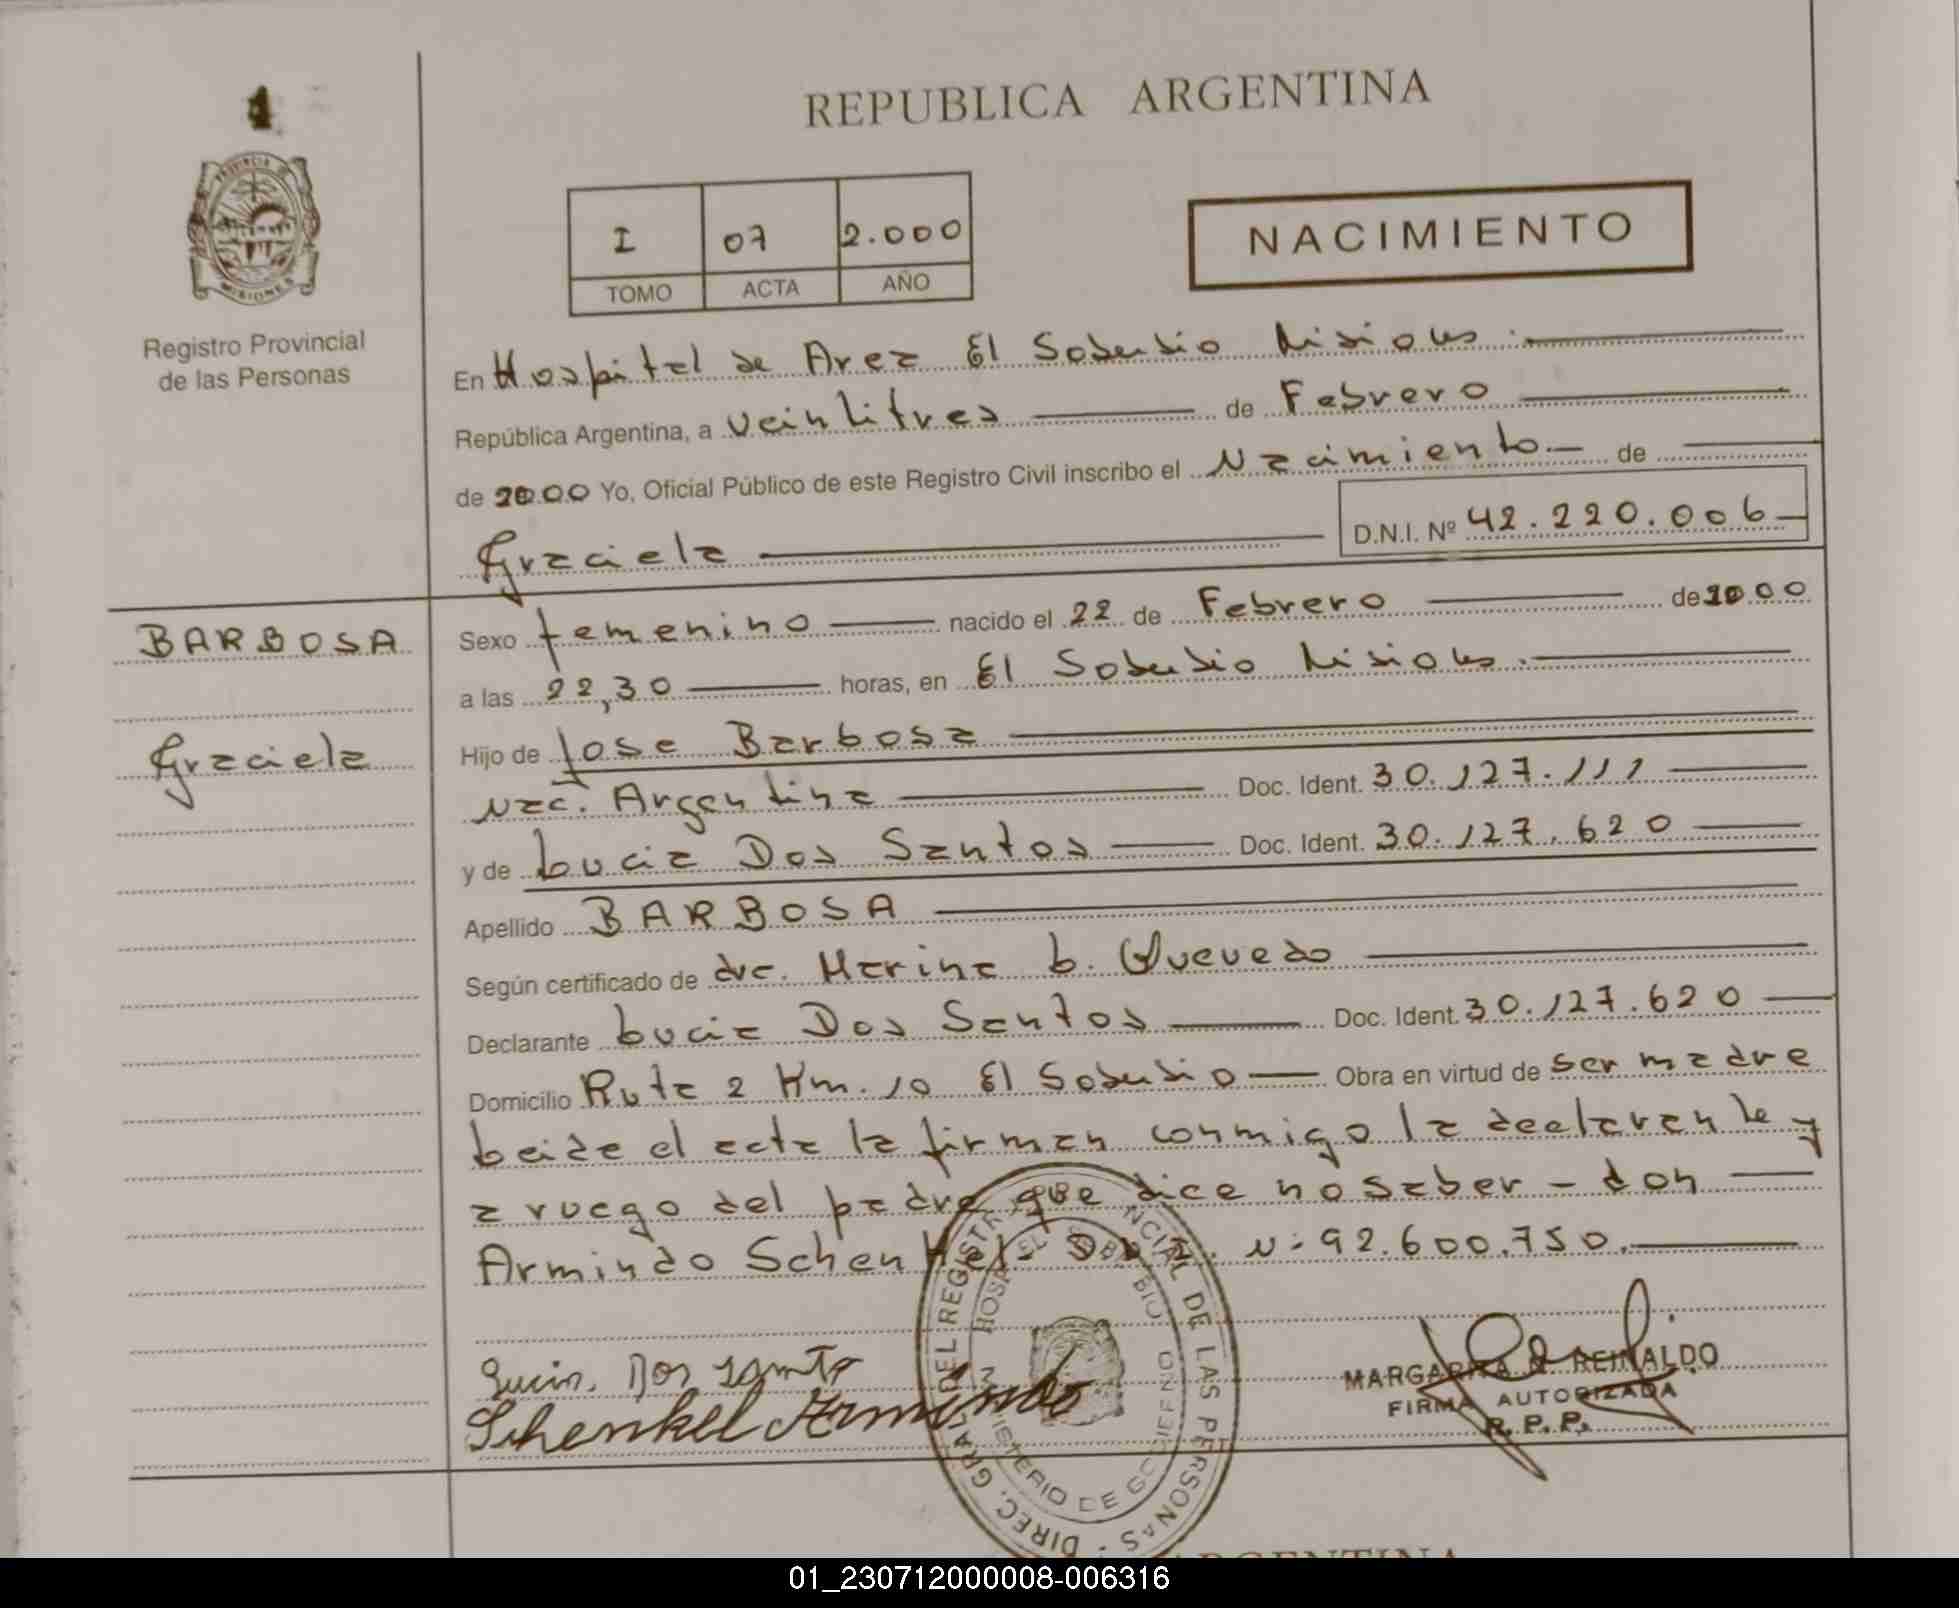 1
REPUBLICA ARGENTINA
PROVINCIA DE
MISIONES
Registro Provincial
de las Personas
I 07 2.000
TOMO ACTA AÑO
NACIMIENTO
En Hospital de Area El Soberbio Misiones.
República Argentina, a veintitres de Febrero
de 2000 Yo, Oficial Público de este Registro Civil inscribo el Nacimiento de
Graciela D.N.I. Nº 42.220.006
BARBOSA
Graciela
Sexo femenino nacido el 22 de Febrero de 2000
a las 22,30 horas, en El Soberbio Misiones.
Hijo de Jose Barbosa
Nac. Argentina Doc. Ident. 30.127.111
y de Lucia Dos Santos Doc. Ident. 30.127.620
Apellido BARBOSA
Según certificado de dra. Marina L. Quevedo
Declarante Lucia Dos Santos Doc. Ident. 30.127.620
Domicilio Ruta 2 Km. 10 El Soberbio Obra en virtud de ser madre
Leida el acta la firman conmigo la declarante y
a ruego del padre que dice no saber - don
Armindo Schenkel D.N.I. N: 92.600.750.
Lucia Dos Santo
Schenkel Armindo
MARGARITA REINALDO
FIRMA AUTORIZADA
R.P.P.
DIREC. GRAL. DEL REGISTRO PROVINCIAL DE LAS PERSONAS
HOSPITAL EL SOBERBIO
MINISTERIO DE GOBIERNO
ARGENTINA
01_230712000008-006316